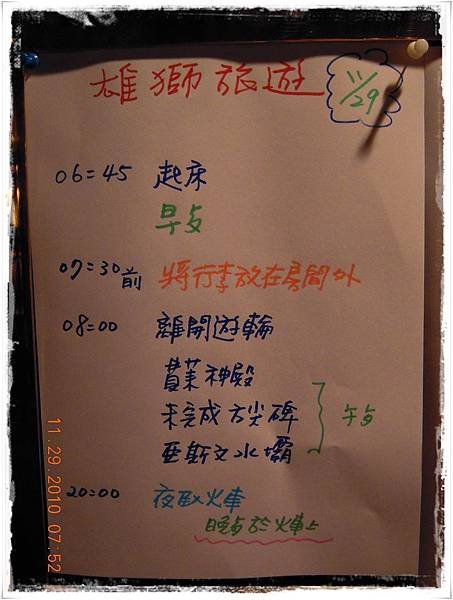 雄獅旅遊
11/29
06=45 起床
早歺
07=30前 將行李放在房間外
08=00 離開遊輪
費萊神殿
未完成方尖碑
午歺
亞斯文水壩
20=00 夜臥火車
晚歺於火車上
11.29.2010 07:52